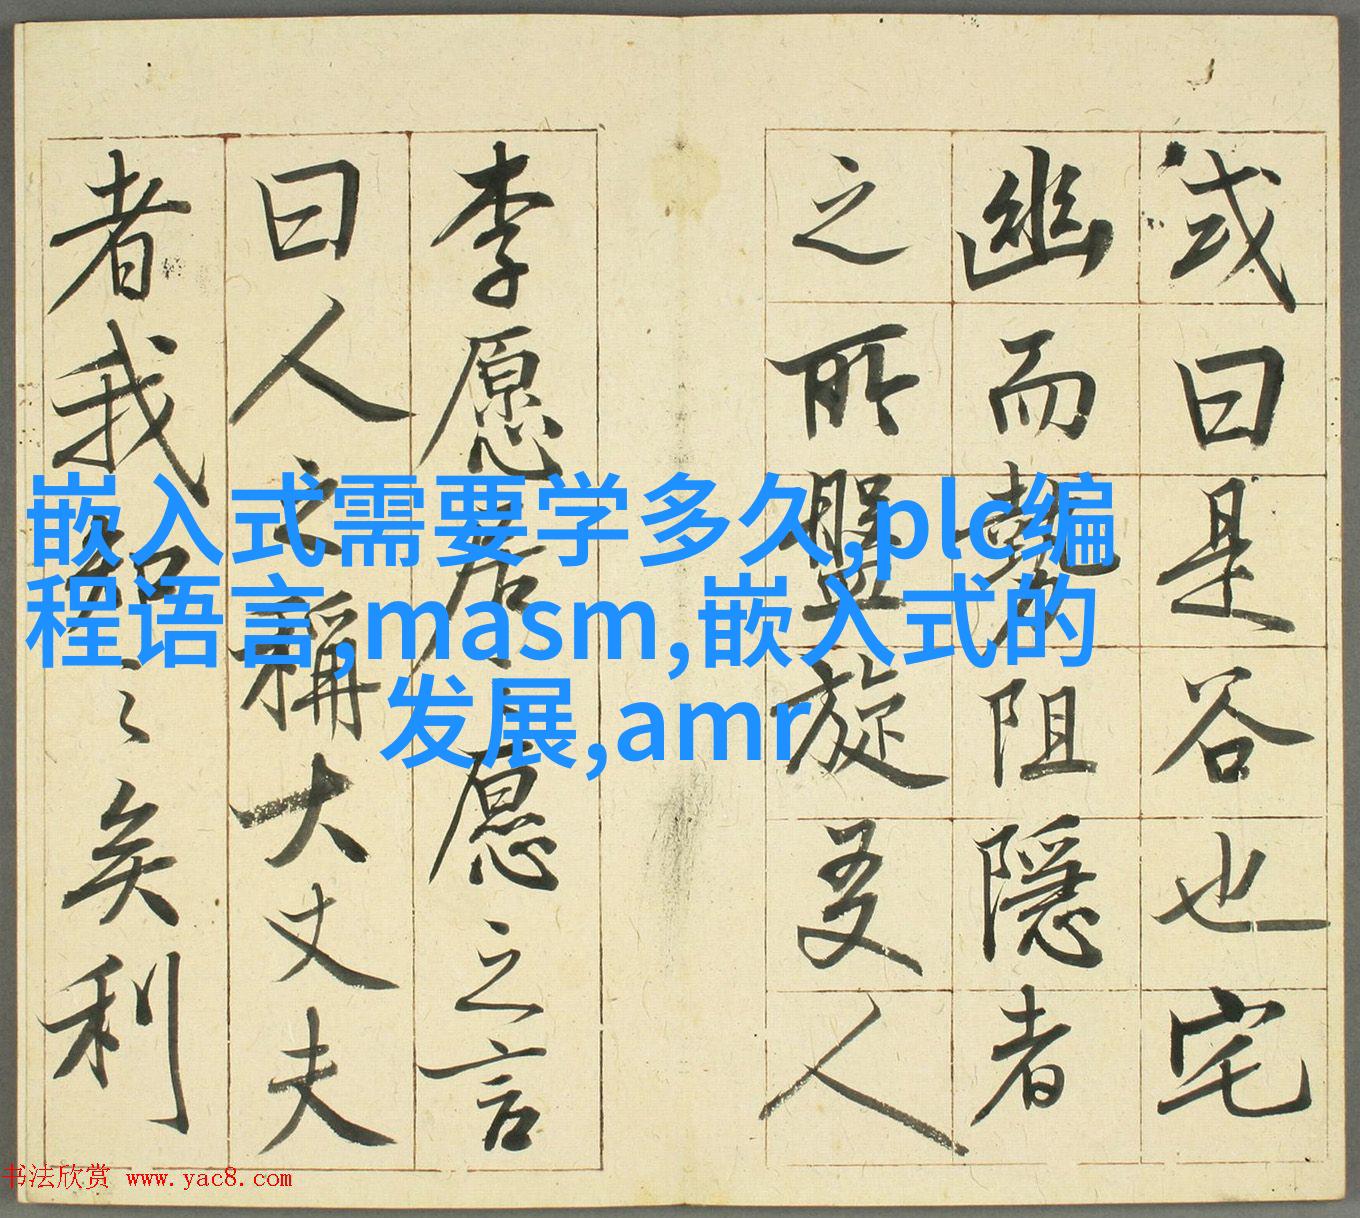 或曰是谷也宅
幽而勢阻隱者
之所盤旋友人
李愿居之愿之言
曰人之稱大丈夫
者我知之矣利
嵌入式需要学多久,plc编
程语言,masm,嵌入式的
发展,amr
书法欣赏 www.yac8.com